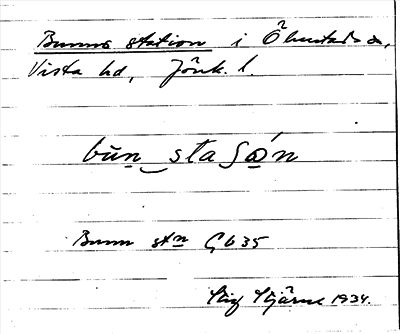 Bunns station i Ölmstads sn,
Vista hd, Jönk. l.
bun͜ staʃon
Bunn stn Gb 35
Stig Stjärne 1934.